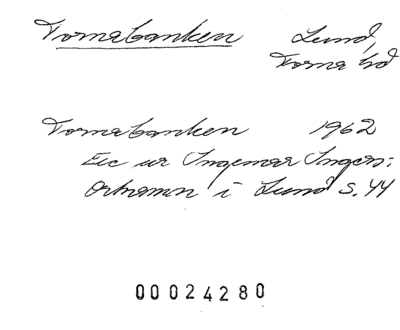 Tornabanken Lund,
Torna hd
Tornabanken 1962
Exc ur Ingemar Ingers:
Ortnamn i Lund s. 44
00024280